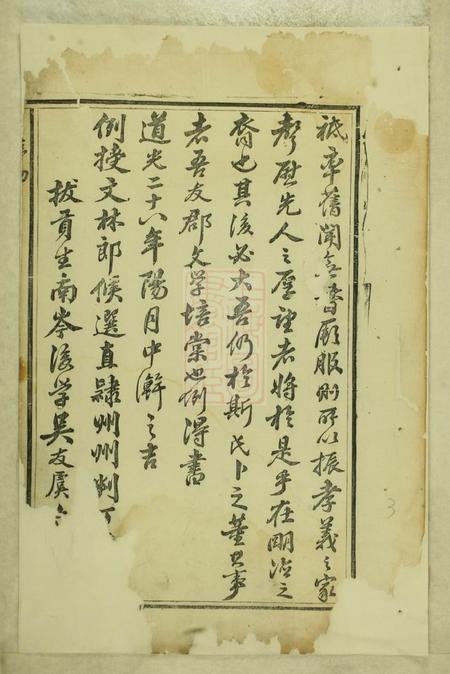 祗率舊聞無替厥服則所以振孝義之家
聲慰先人之厚望者將於是乎在明德之
裔也其後必大吾仍於斯氏卜之董其事
者吾友郡文學培棠也例得書
道光二十八年陽月中澣之吉
例授文林郎候選直隸州州判
拔貢生南岑後學吳友虞